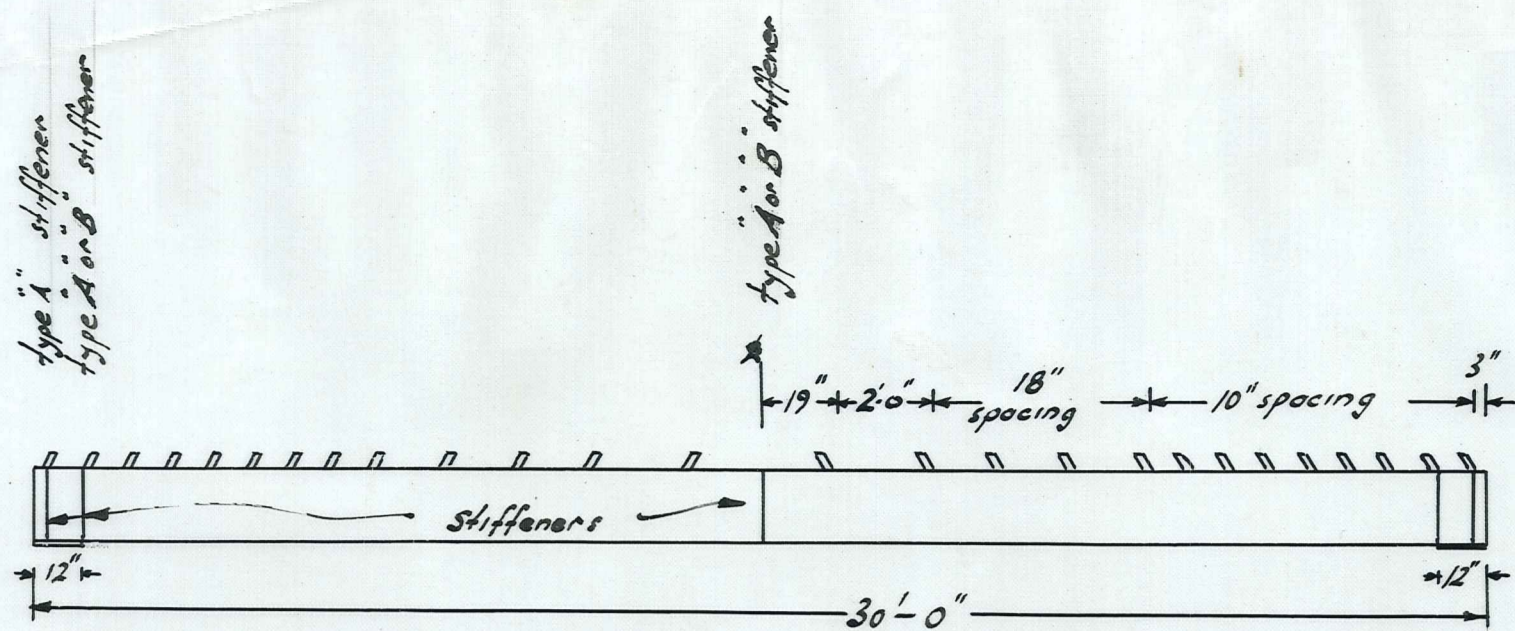 type "A" stiffener
type "A" or "B" stiffener
type "A" or "B" stiffener
19"
2'-0"
18"
spacing
10" spacing
3"
stiffeners
12"
12"
30'-0"